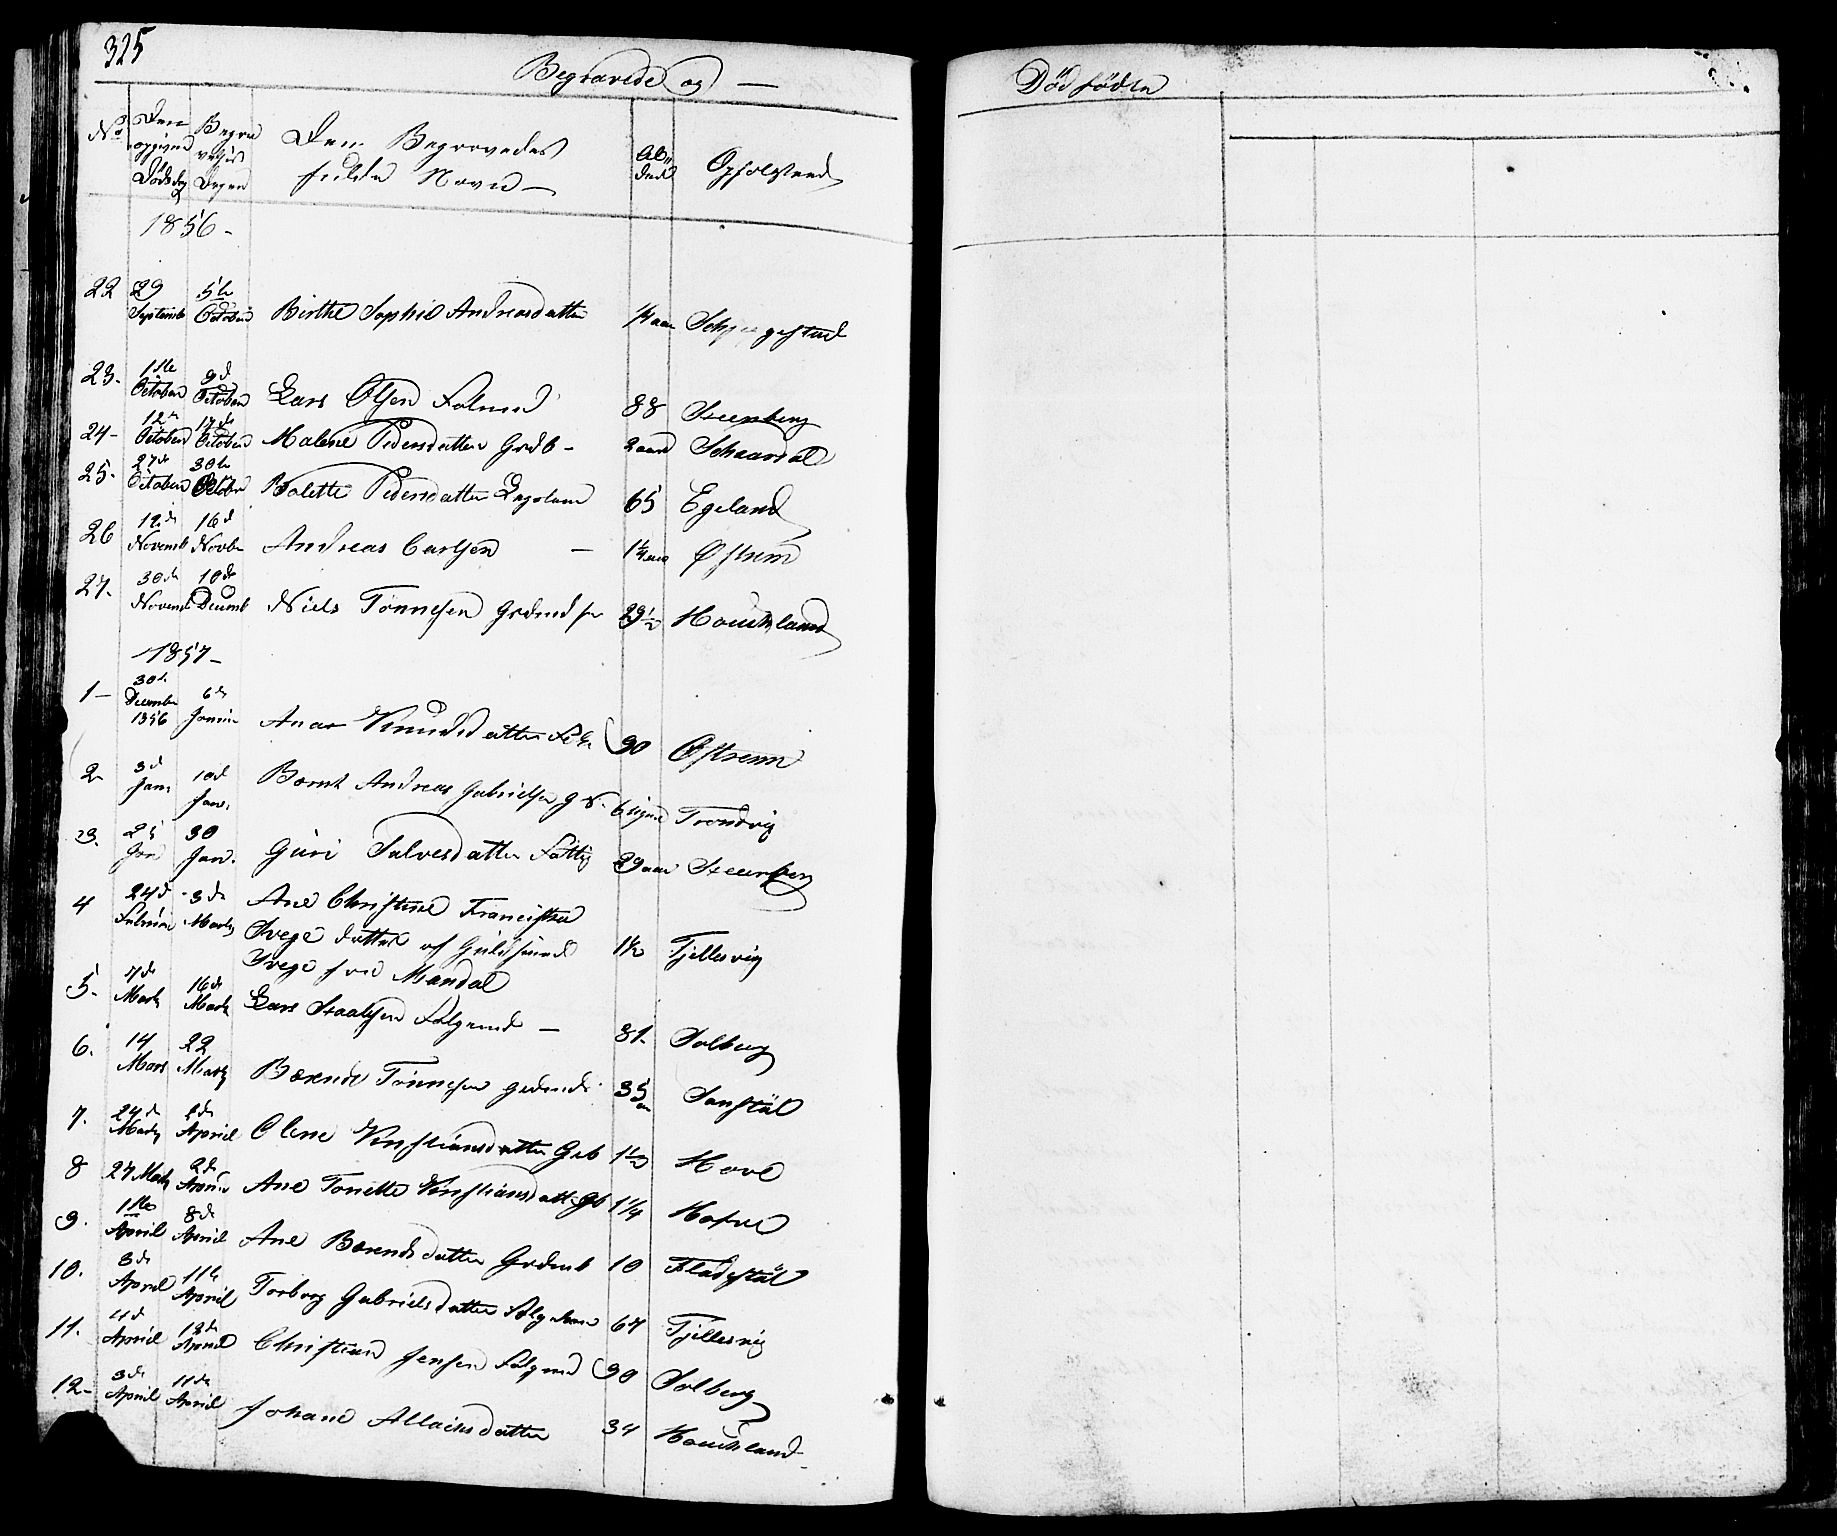 325
Begravede og —
Dødfødte
No Den opgivne Dødsdag Begravelses Dagen Den Begravedes fulde Navn — Alder Opholdsted
1856 -
22 29 Septembr 5te October Birthe Sophie Andreasdatter 14 aar
23. 1ste October 9d October Lars Olsen 88 Steenberg
24 - 12te October 17de October Malene Pedersdatter Grdb - 2 aar Schaardal
25. 27de October 30te October Bolette Pedersdatter 65 Egeland
26 12d Novemb 16d Novbr Andreas Carlsen — 1¼ aar Østrem
27. 30de Novemb 10de Decemb Niels Tønnesen 29½ Houchland
1857 -
1 - 30te December 1856 6de Januar Anar Knudsdatter 90 Østrem
2 3d Jan. 10d Jan. Bernt Andreas Gabrielsen 6 uger Trondvig
3. 25 Jan 30 Jan. Guri Salvesdatter Fattig 29 aar Steenberg
4 24d Februar 3de Marts Ane Christine Francisca
Svege datter af
Svege fra Mandal 1½ Tjellesvig
5. 7de Marts 16de Marts Lars Staalsen — 81 - Solberg
6. 14 Mars 22 Marts Berende Tønnesen 35 aar Sonstøl
7. 24de Marts 2de April Olene Kirstiansdatter Grb 1½ Hove
8 27 Marts 2de April Ane Tonette Kirstiansdatter Gb 1¼ Hofve
9. 1ste April 8de April Ane Berendsdatter 10 Fladestøl
10. 3de April 11te April Torborg Gabrielsdatter 67 Tjellesvig
11. 11d April 18de April Christian Jensen 90 Solberg
12 - 3de April 11de April Johane Allachsdatter 34 Houchland -